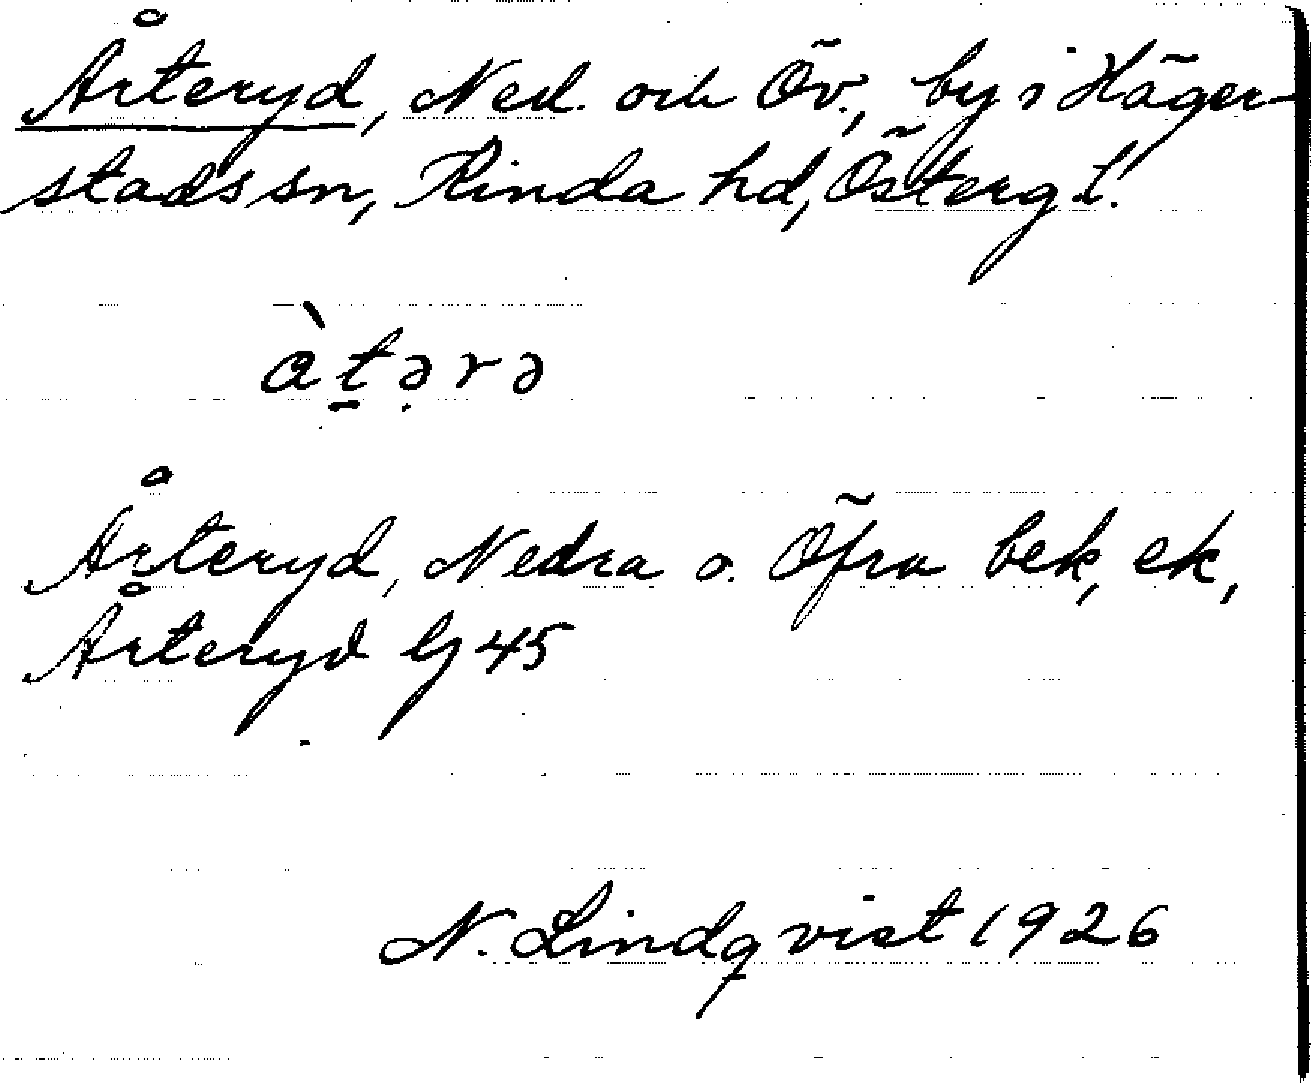 Årteryd, Ned. och Öv., by i Häger-
stads sn, Kinda hd, Östergl.
àt̠ərə
Årteryd, Nedra o. Öfra bek, ek,
Årteryd Gj 45
N. Lindqvist 1926